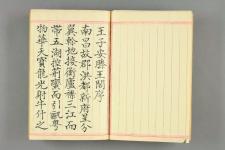 王子安滕王閣序
南昌故郡洪都新府星分
翼軫地接衡廬襟三江而
帶五湖控荊蠻而引甌粵
物華天寶龍光射牛斗之